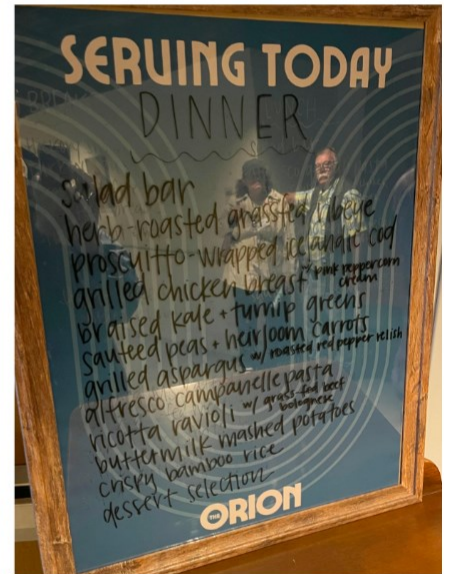 SERVING TODAY
DINNER
salad bar
herb-roasted grassfed ribeye
proscuitto-wrapped icelandic cod
grilled chicken breast w/ pink peppercorn cream
braised kale + turnip greens
sauteed peas + heirloom carrots
grilled aspargus w/ roasted red pepper relish
alfresco campanelle pasta
ricotta ravioli w/ grass-fed beef bolognese
buttermilk mashed potatoes
crispy bamboo rice
dessert selection
THE ORION